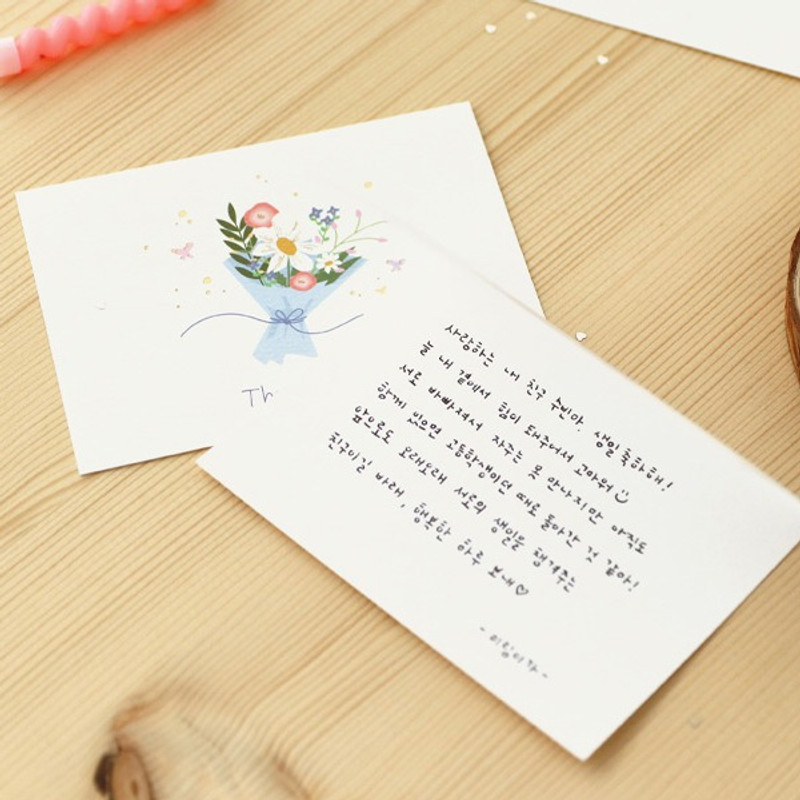 Th
사랑하는 내 친구 수빈아. 생일축하해!
늘 내 곁에서 힘이 돼주어서 고마워
서로 바빠져서 자주는 못 만나지만 아직도
함께 있으면 고등학생이던 때로 돌아간 것 같아!
앞으로도 오래오래 서로의 생일을 챙겨주는
친구이길 바래, 행복한 하루 보내♡